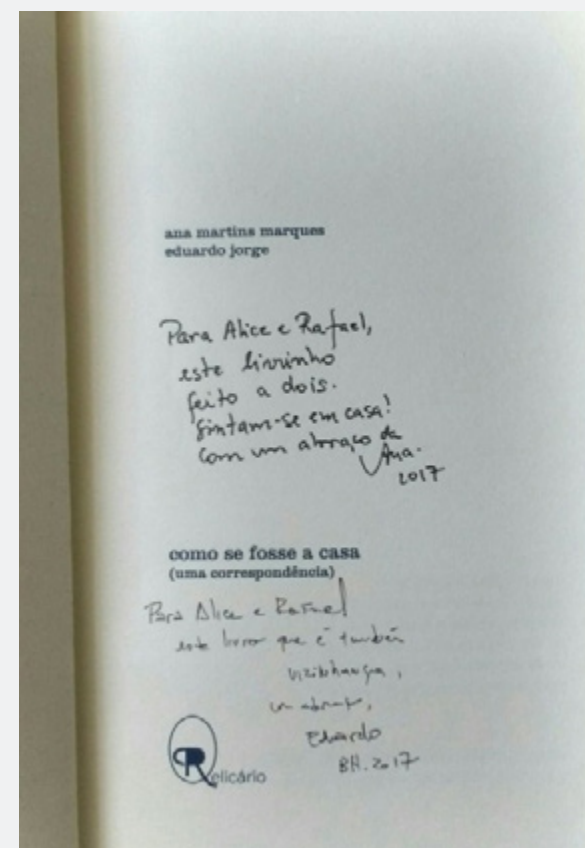 ana martins marques
eduardo jorge
Para Alice e Rafael,
este livrinho
feito a dois.
Sintam-se em casa!
Com um abraço da
Ana.
2017
como se fosse a casa
(uma correspondência)
Para Alice e Rafael
este livro que é também
vizinhança,
um abraço,
Eduardo
BH. 2017
Relicário